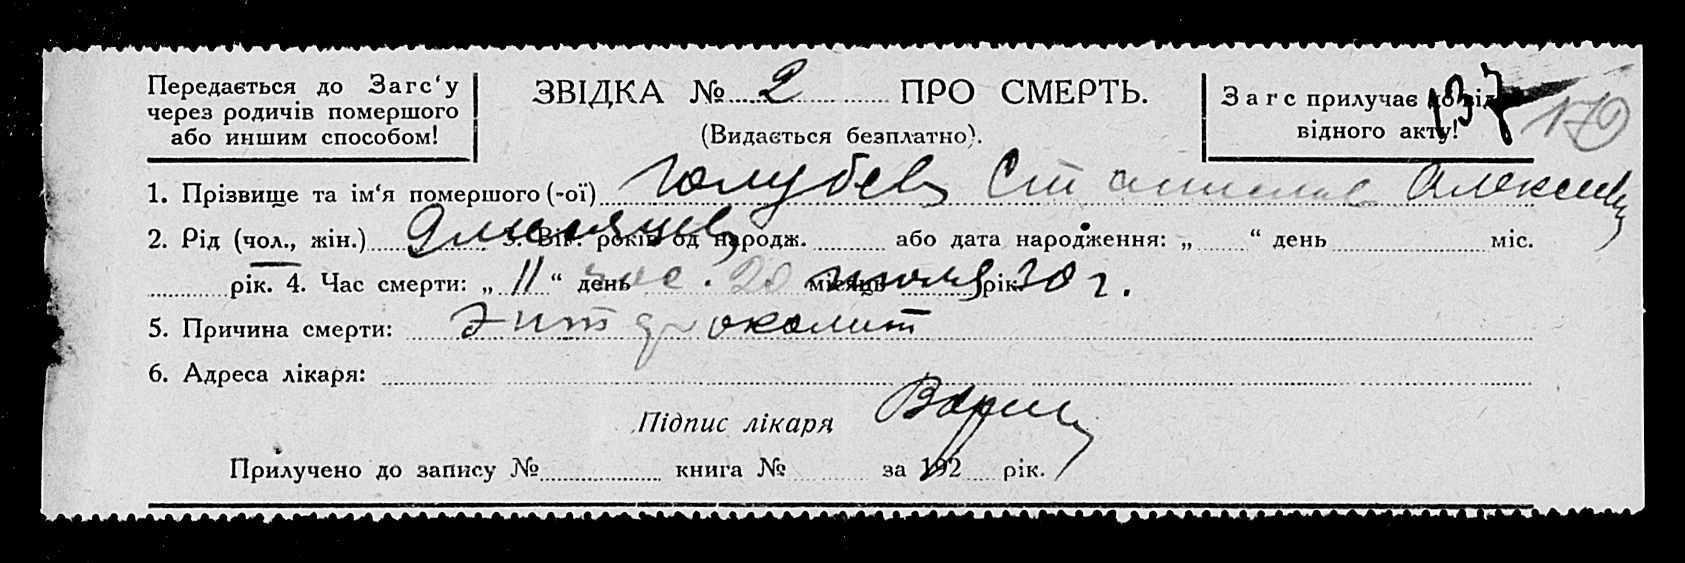 Передається до Загс‘у
через родичів помершого
або иншим способом!
ЗВІДКА № 2 ПРО СМЕРТЬ.
(Видається безплатно).
Загс прилучає до від
відного акту!
137
170
1. Прізвище та ім‘я помершого (-ої) Голубев Станислав Алексеев
2. Рід (чол., жін.) 9 месяцев 3. Вік: років од народж. або дата народження: „ “ день міс.
рік. 4. Час смерти: „ 11 “ день час. 20 місяць июля рік 30 г.
5. Причина смерти: Энтероколит
6. Адреса лікаря:
Підпис лікаря
Прилучено до запису № книга № за 192 рік.